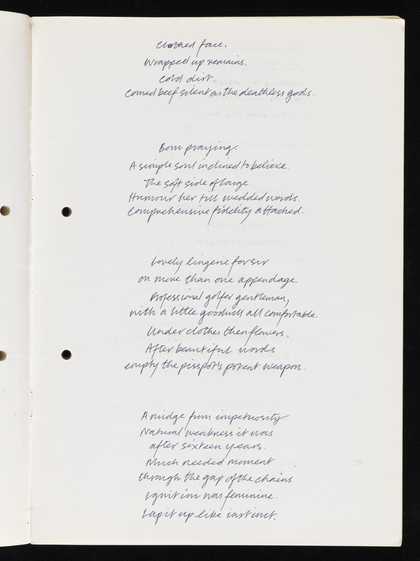 Closed face.
Wrapped up remains.
Cold dirt.
Corned beef silent as the deathless gods.
Born praying.
A simple soul inclined to believe.
The soft side of large
Humour her till wedded words.
Comprehensive fidelity attached.
Lovely lingerie for sir
on more than one appendage.
Professional golfer gentleman,
with a little goodwill all comfortable.
Under clothes then flowers.
After beautiful words
empty the pisspot's potent weapon.
A nudge from impetuosity
Natural weakness it was
after sixteen years.
Much needed moment
through the gap of the chains
Ignition was feminine.
Lap it up like instinct.